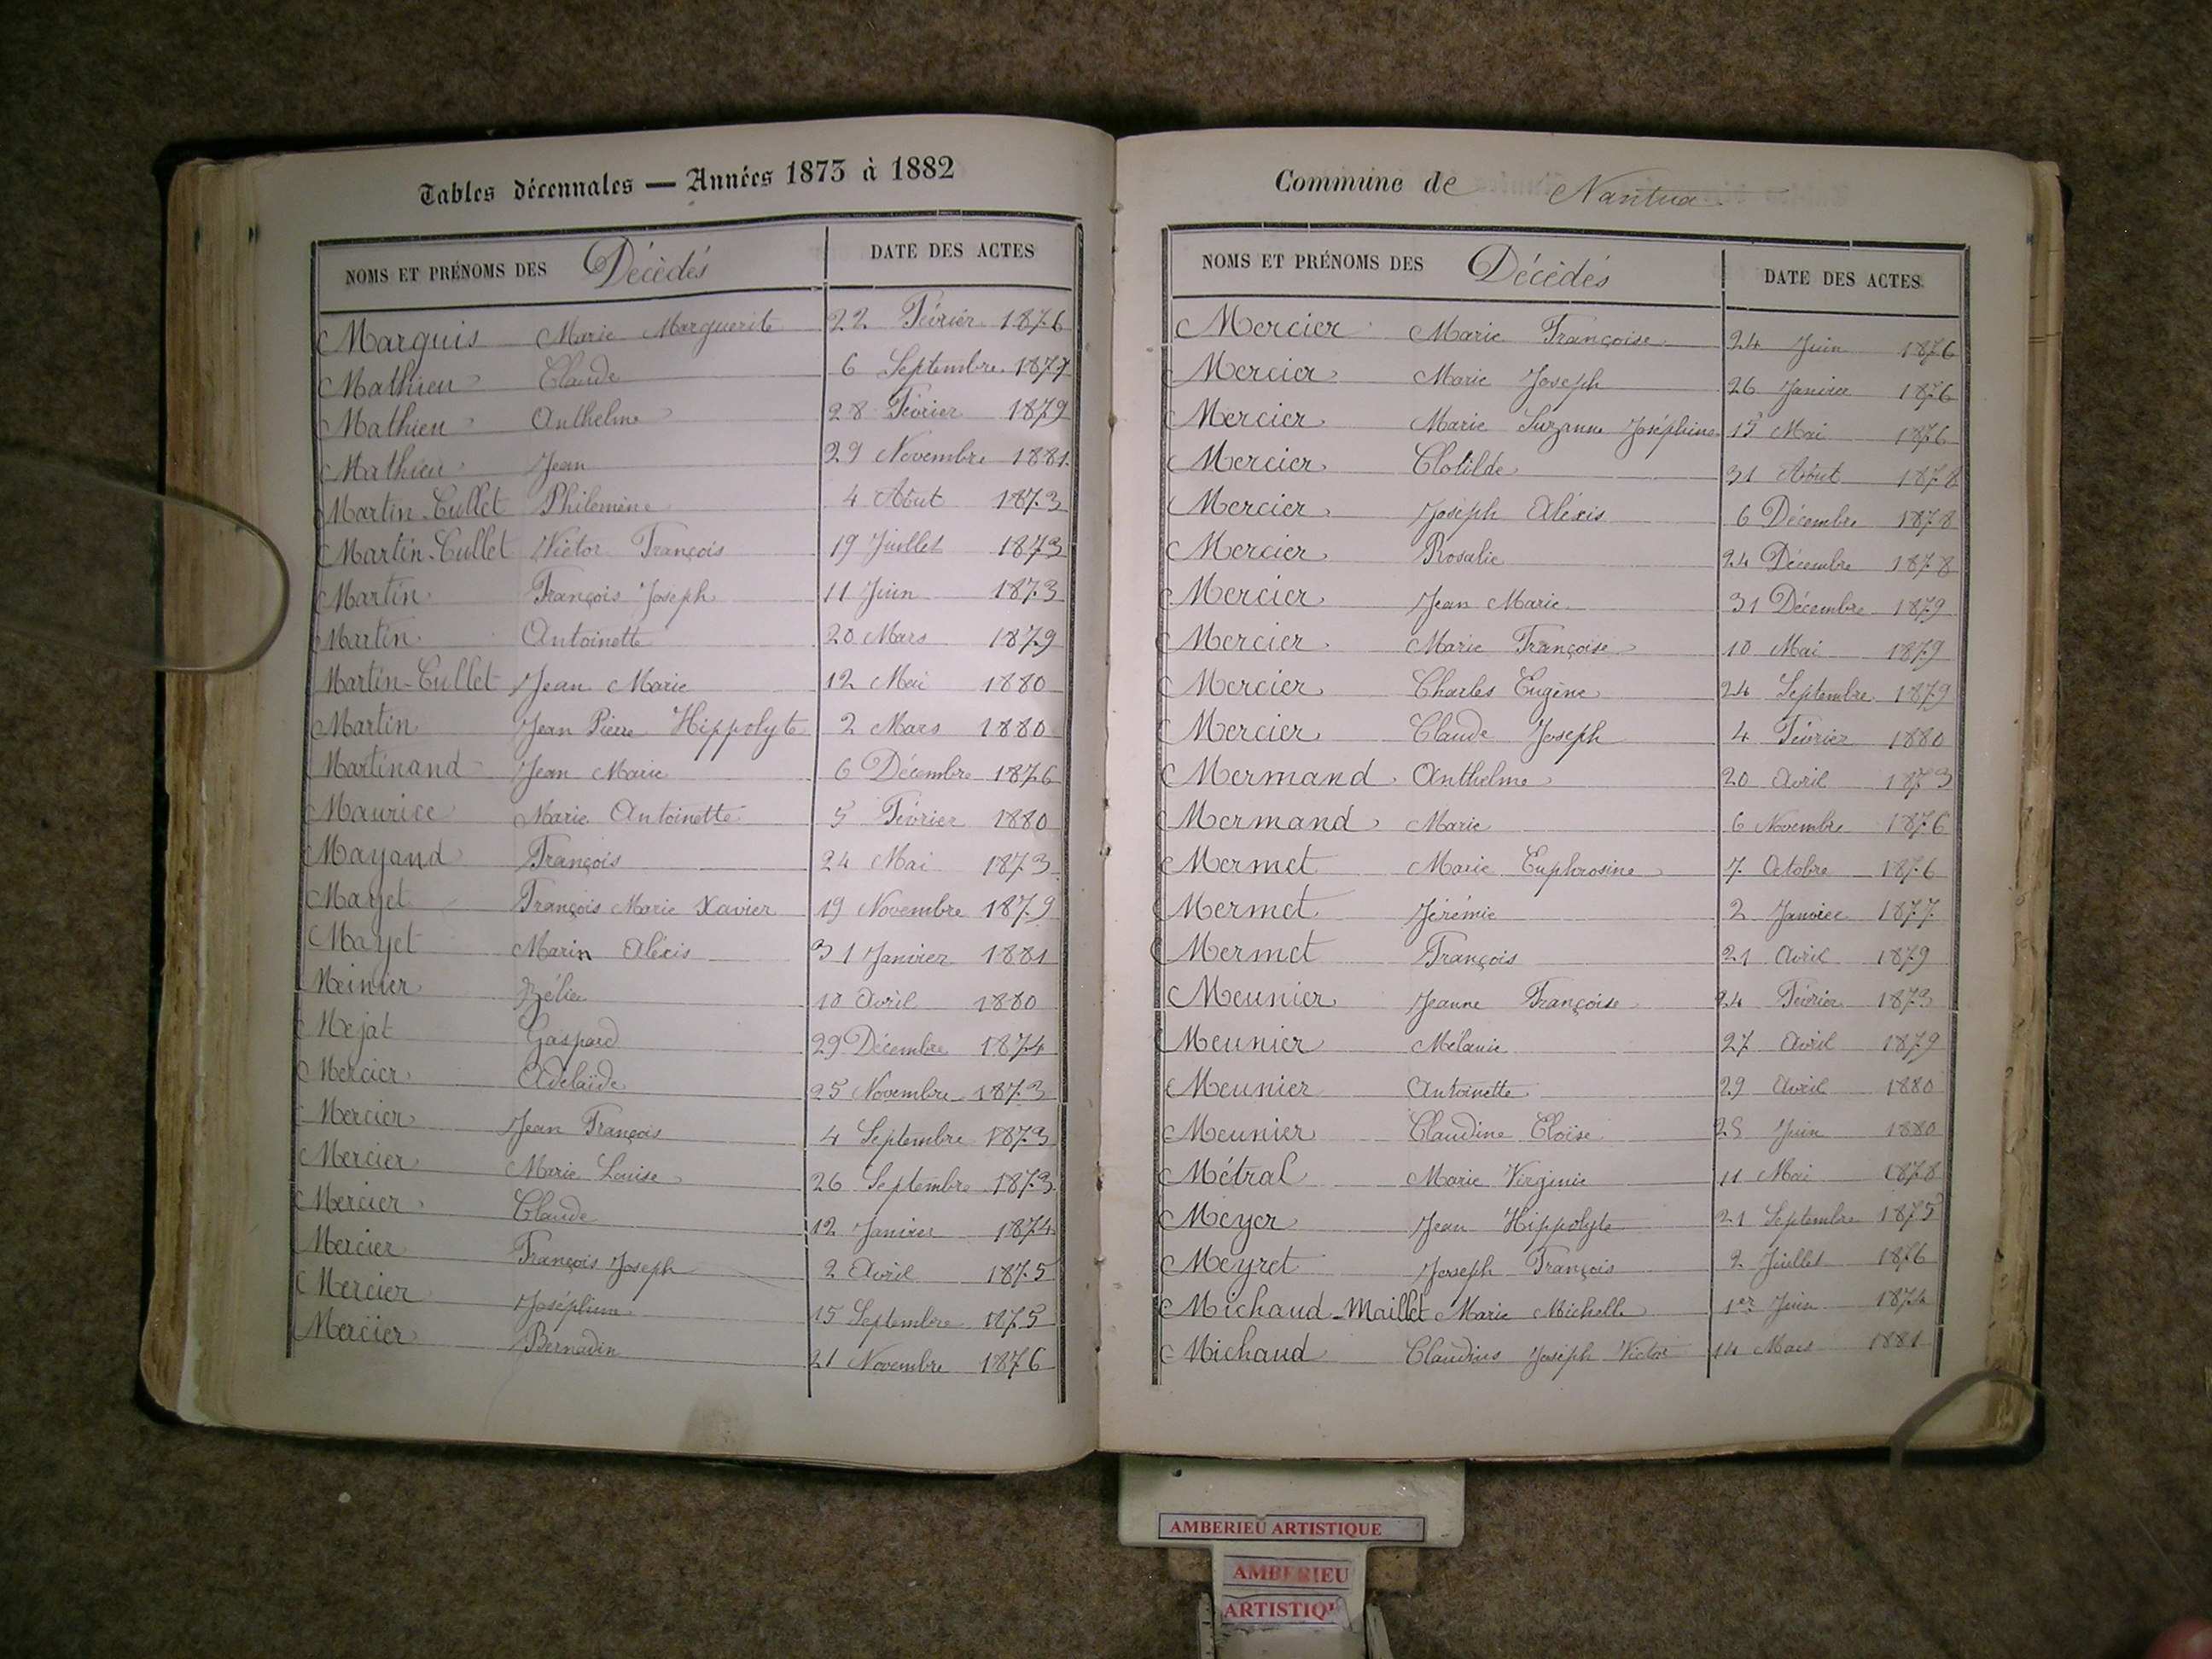 Tables décennales — Années 1873 à 1882
NOMS ET PRÉNOMS DES Décédés DATE DES ACTES
Marquis Marie Marguerite 22 Février 1876
Mathieu Claude 6 Septembre 1877
Mathieu Anthelme 28 Février 1879
Mathieu Jean 29 Novembre 1881
Martin-Cullet Philomène 4 Aout 1873
Martin-Cullet Victor François 19 Juillet 1873
Martin François Joseph 11 Juin 1873
Martin Antoinette 20 Mars 1879
Martin-Cullet Jean Marie 12 Mai 1880
Martin Jean Pierre Hippolyte 2 Mars 1880
Martinand Jean Marie 6 Décembre 1876
Maurice Marie Antoinette 5 Février 1880
Mayand François 24 Mai 1873
Mayet François Marie Xavier 19 Novembre 1879
Mayet Marin Aléxis 31 Janvier 1881
Meinier Zélie 10 Avril 1880
Mejat Gaspard 29 Décembre 1874
Mercier Adelaïde 25 Novembre 1873
Mercier Jean François 4 Septembre 1873
Mercier Marie Louise 26 Septembre 1873
Mercier Claude 12 Janvier 1874
Mercier François Joseph 2 Avril 1875
Mercier Joséphine 15 Septembre 1875
Mercier Bernadin 21 Novembre 1876
Commune de Nantua
NOMS ET PRÉNOMS DES Décédés DATE DES ACTES
Mercier Marie Françoise 24 Juin 1876
Mercier Marie Joseph 26 Janvier 1876
Mercier Marie Suzanne Joséphine 15 Mai 1876
Mercier Clotilde 31 Aout 1878
Mercier Joseph Aléxis 6 Décembre 1878
Mercier Rosalie 24 Décembre 1878
Mercier Jean Marie 31 Décembre 1879
Mercier Marie Françoise 10 Mai 1879
Mercier Charles Eugène 24 Septembre 1879
Mercier Claude Joseph 4 Février 1880
Mermand Anthelme 20 Avril 1873
Mermand Marie 6 Novembre 1876
Mermet Marie Euphrosine 7 Octobre 1876
Mermet Jérémie 2 Janvier 1877
Mermet François 21 Avril 1879
Meunier Jeanne Françoise 24 Février 1873
Meunier Mélanie 27 Avril 1879
Meunier Antoinette 29 Avril 1880
Meunier Claudine Eloïse Juin 1880
Métral Marie Virginie 11 Mai 1878
Meyer Jean Hippolyte 21 Septembre 1875
Meyret Joseph François 2 Juillet 1876
Michaud-Maillet Marie Michelle 1er Juin 1874
Michaud Claudius Joseph Victor 14 Mars 1881
AMBERIEU ARTISTIQUE
AMBERIEU
ARTISTIQU